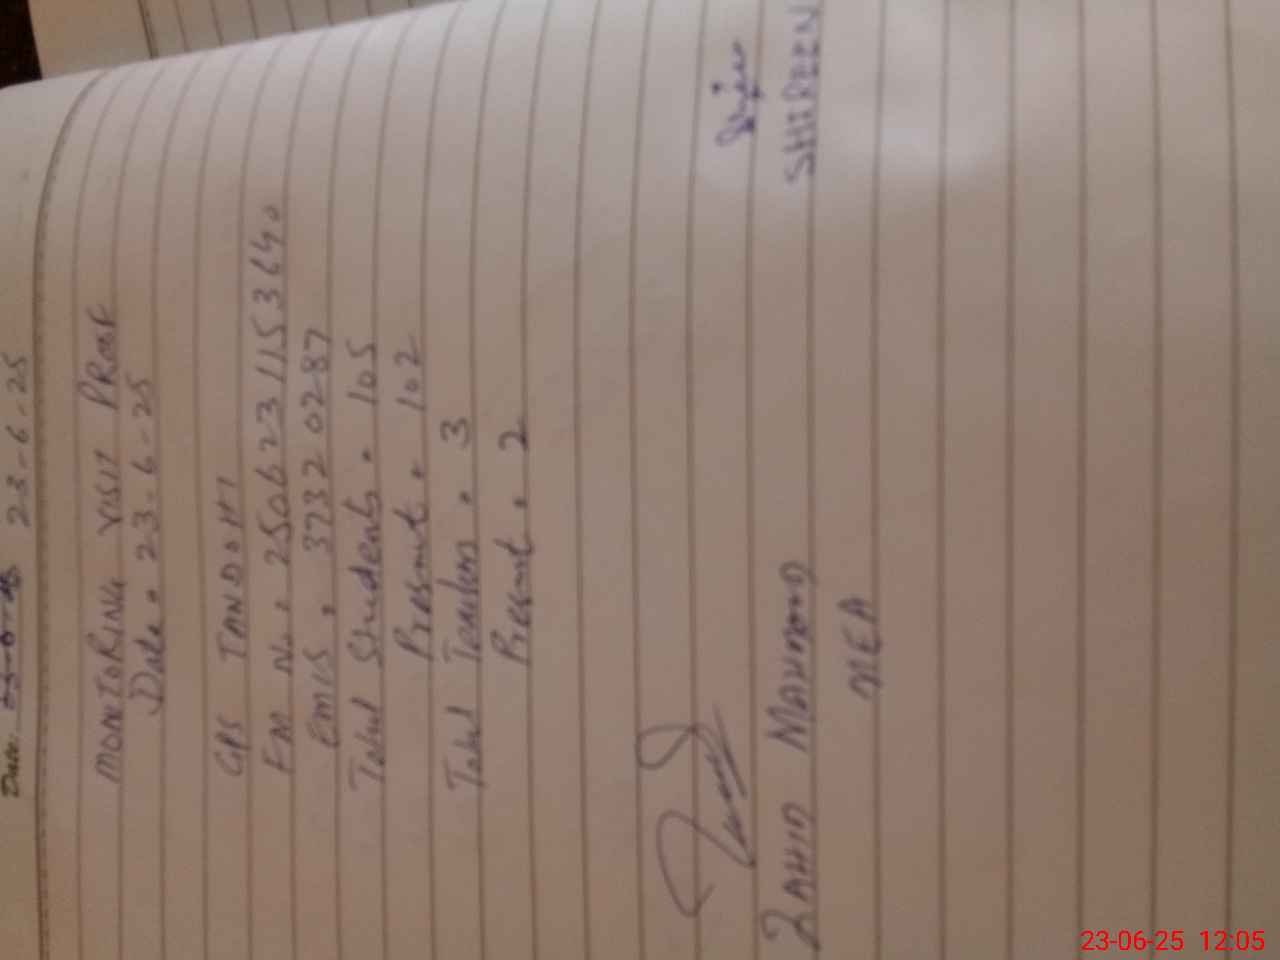 Date: 23-6-25
MONETORING VISIT PROOF
Date. 23-6-25
GPS TANDOHI
FM No. 2506231153640
EMIS. 37320287
Total Students. 105
Present. 102
Total Teachers. 3
Present. 2
ZAHID MAHMOOD
MEA
SHIREEN
23-06-25 12:05